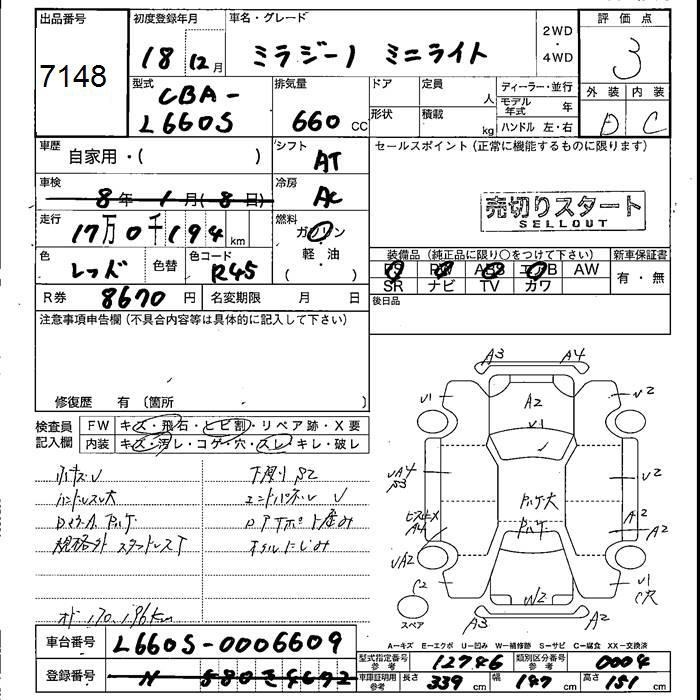 出品番号
7148
初度登録年月
18 12月
車名・グレード
ミラジーノ ミニライト
2WD
・
4WD
評価点
3
外装 内装
D C
型式
CBA-
L660S
排気量
660 CC
ドア
定員
人
形状
積載
kg
ディーラー・並行
モデル年式 年
ハンドル 左・右
車歴
自家用・( )
シフト
AT
セールスポイント (正常に機能するものに限ります)
売切りスタート
SELLOUT
車検
8年 1月(8日)
冷房
AC
走行
17万0千194 km
燃料
ガソリン
・
軽・油
( )
色
レッド
色替
色コード
R45
装備品 (純正品に限り○をつけて下さい)
PS PW ABS エアB AW
SR ナビ TV カワ
新車保証書
有・無
R券 8670 円
名変期限 月 日
後日品
注意事項申告欄 (不具合内容等は具体的に記入して下さい)
修復歴 有 (箇所 )
検査員
記入欄
FW キズ・飛石・ヒビ割・リペア跡・X要
内装 キズ・汚レ・コゲ・穴・スレ・キレ・破レ
ハンドルスレ大
下廻りS2
エンドパネルU
規格外 スタッドレスT
オイルにじみ
A3 A4
U1 A2 U2
U1
UA4 U2
B3
A4 A2 A2
UA2
C2 W2 U1
C穴
A3 A2
スペア
車台番号 L660S-0006609
登録番号
A-キズ E-エクボ U-凹み W-補修跡 S-サビ C-腐食 XX-交換済
型式指定番号
参考
12746
類別区分番号
参考
0004
車庫証明用
参考
長さ 339 cm 幅 147 cm 高さ 151 cm